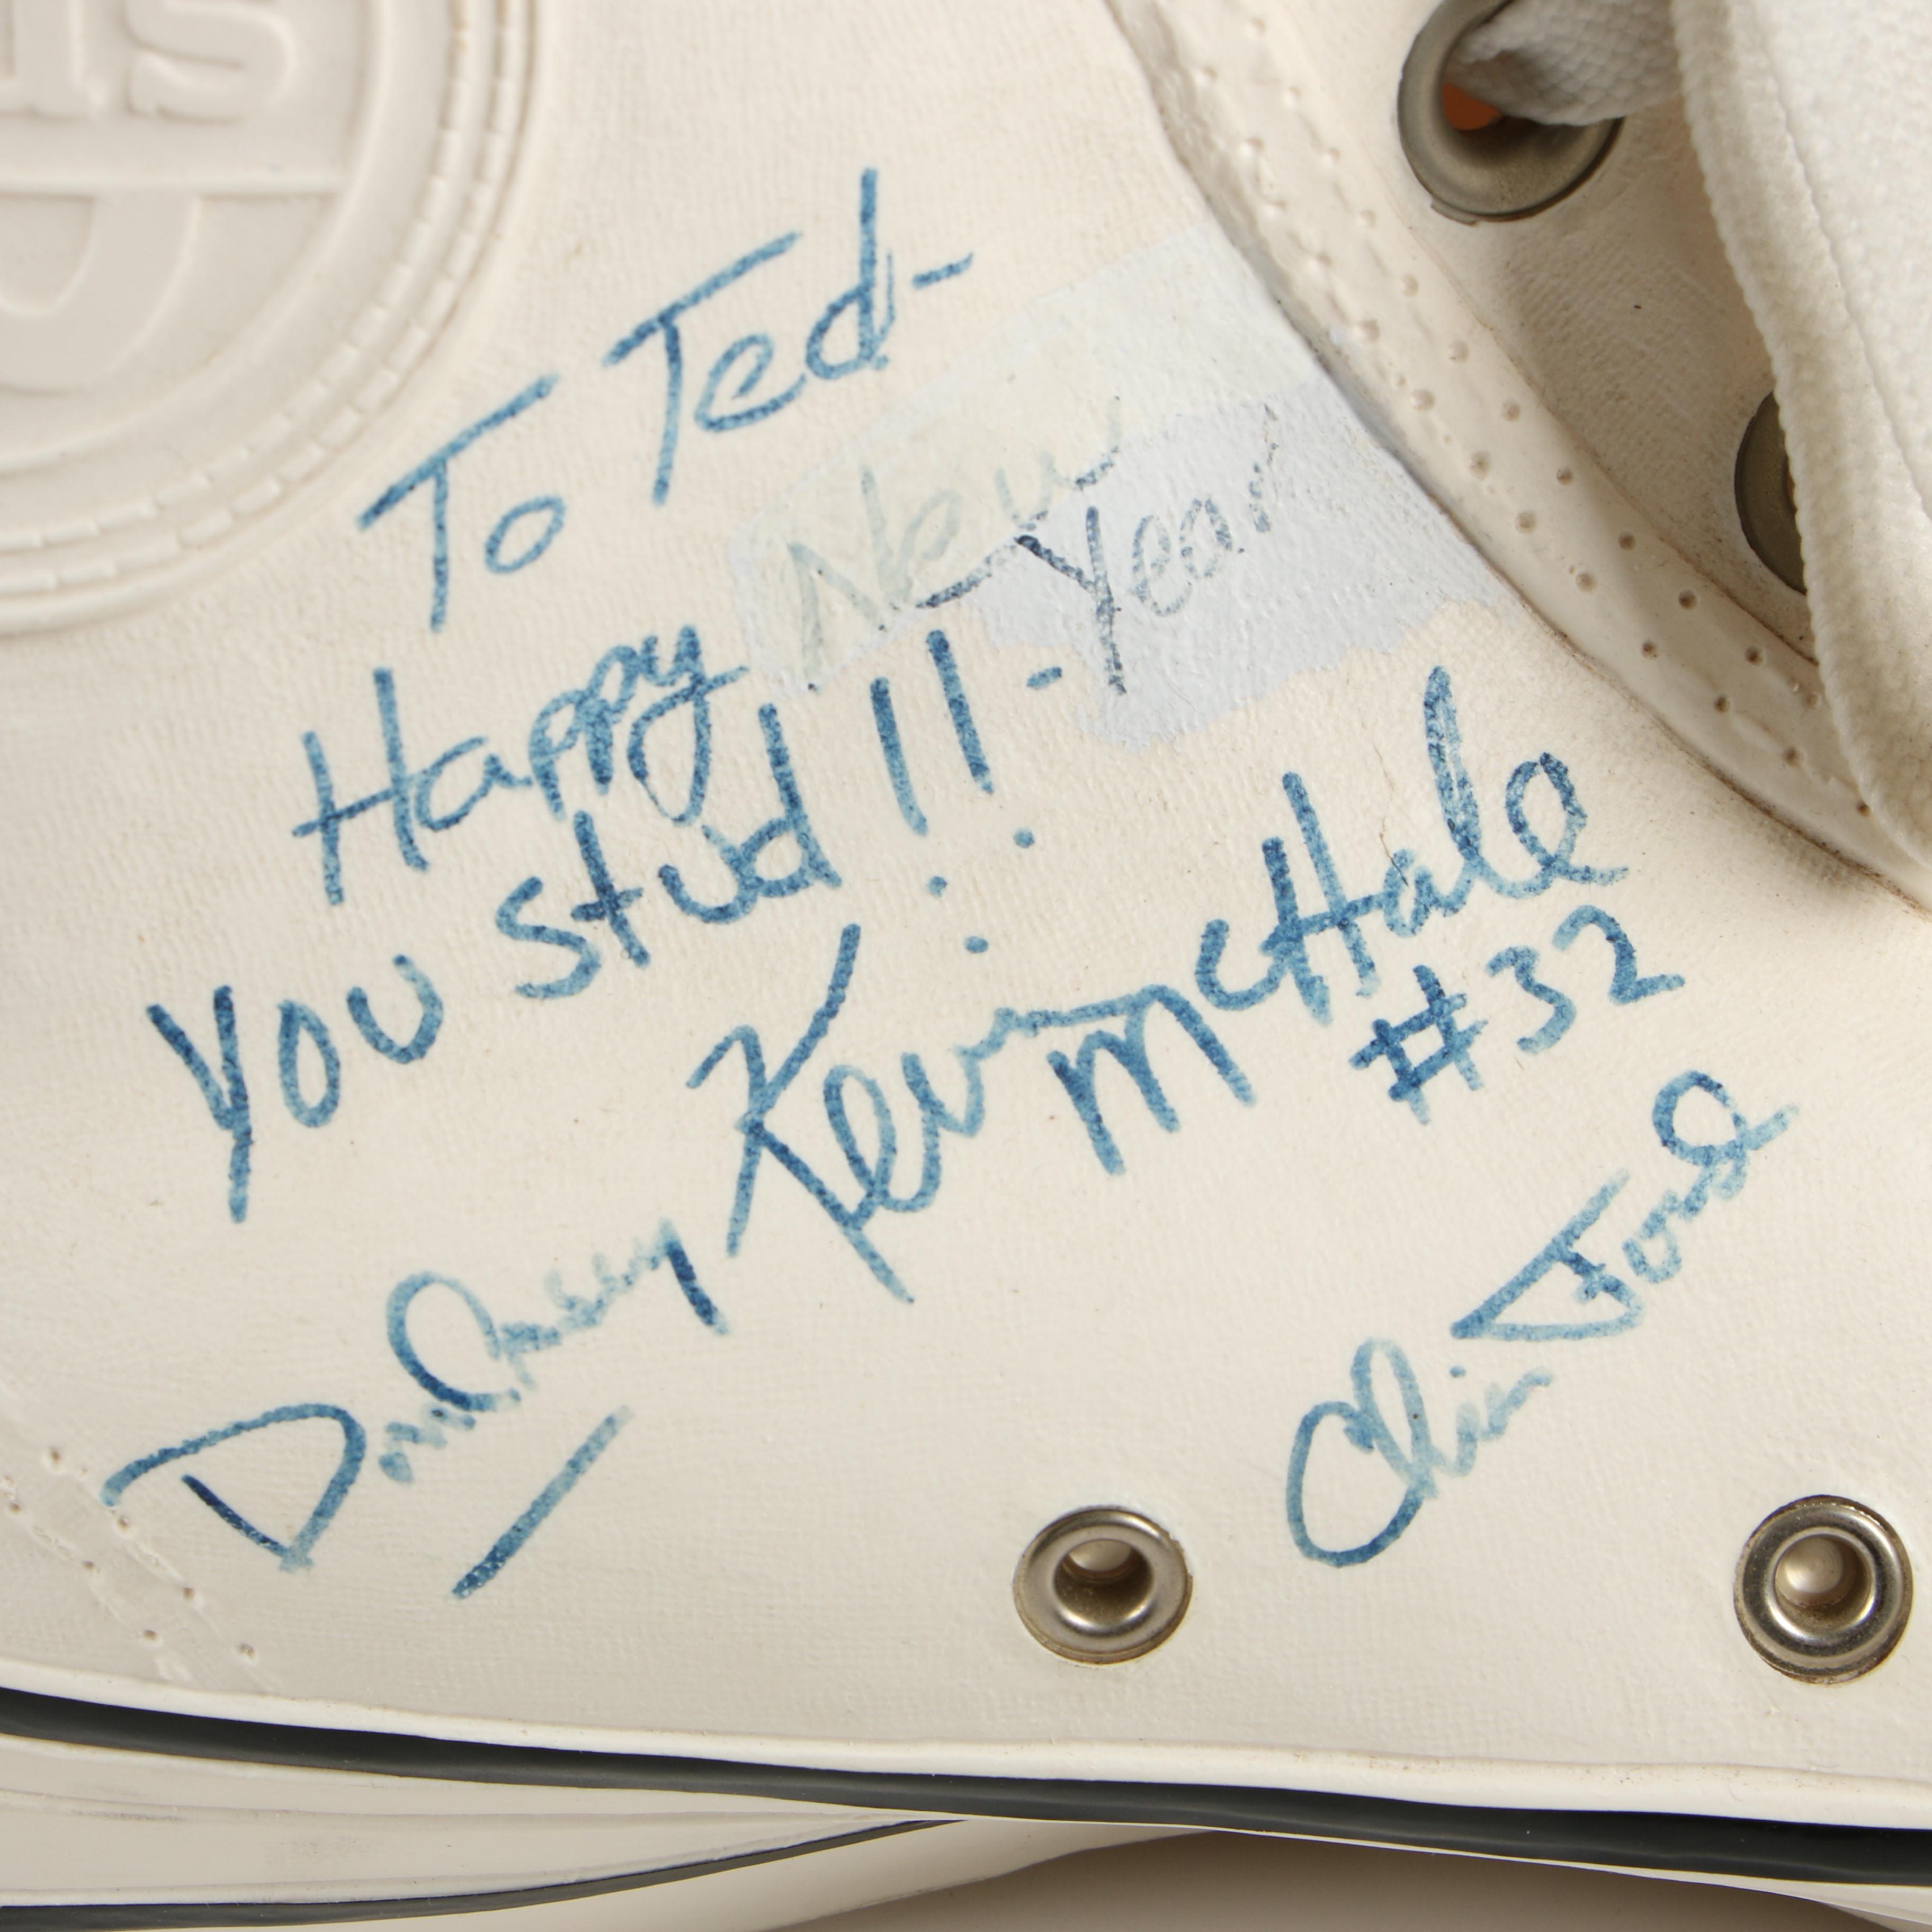 To Ted-
Happy New Year
You stud!! -
Kevin McHale
#32
Don Casey
Chris Ford